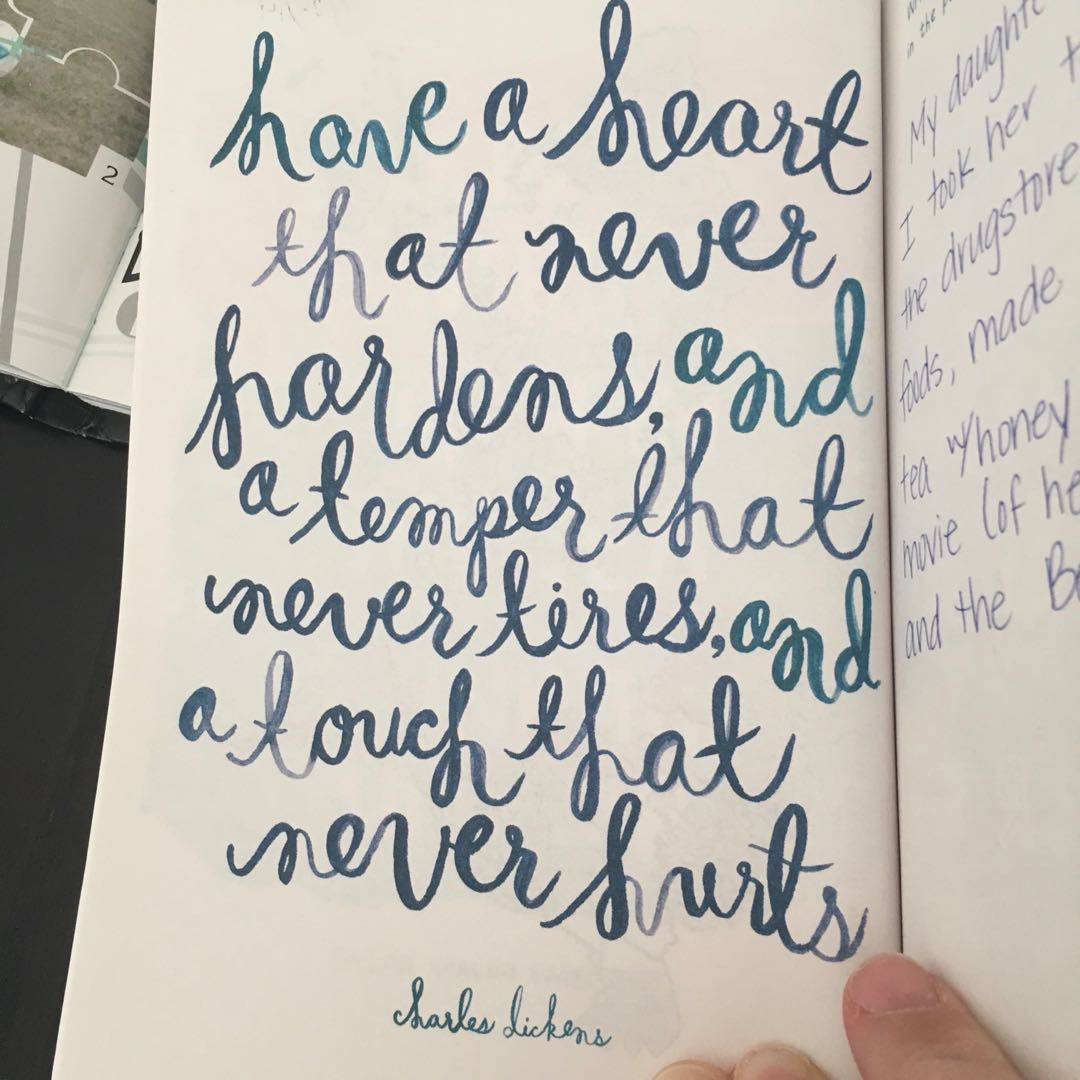 have a heart
that never
hardens, and
a temper that
never tires, and
a touch that
never hurts
charles dickens
2
in the
My
I took her
the drugstore
foods, made
tea w/honey
movie (of
and the